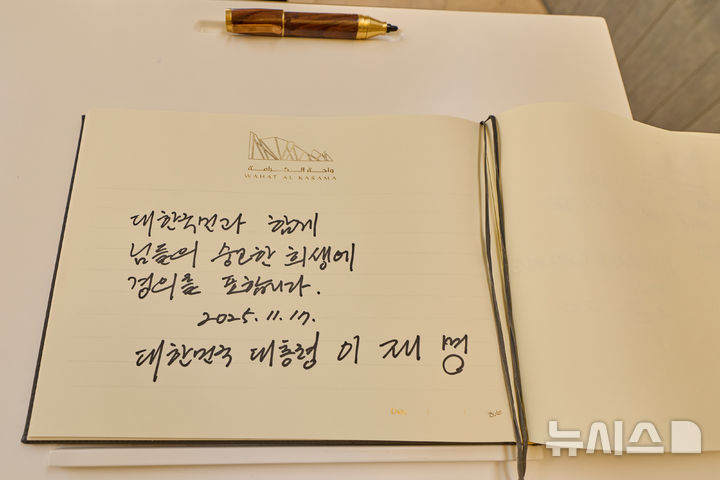 واحة الكرامة
WAHAT AL KARAMA
대한국민과 함께
님들의 숭고한 희생에
경의를 표합니다.
2025.11.17.
대한민국 대통령 이 재 명
뉴시스